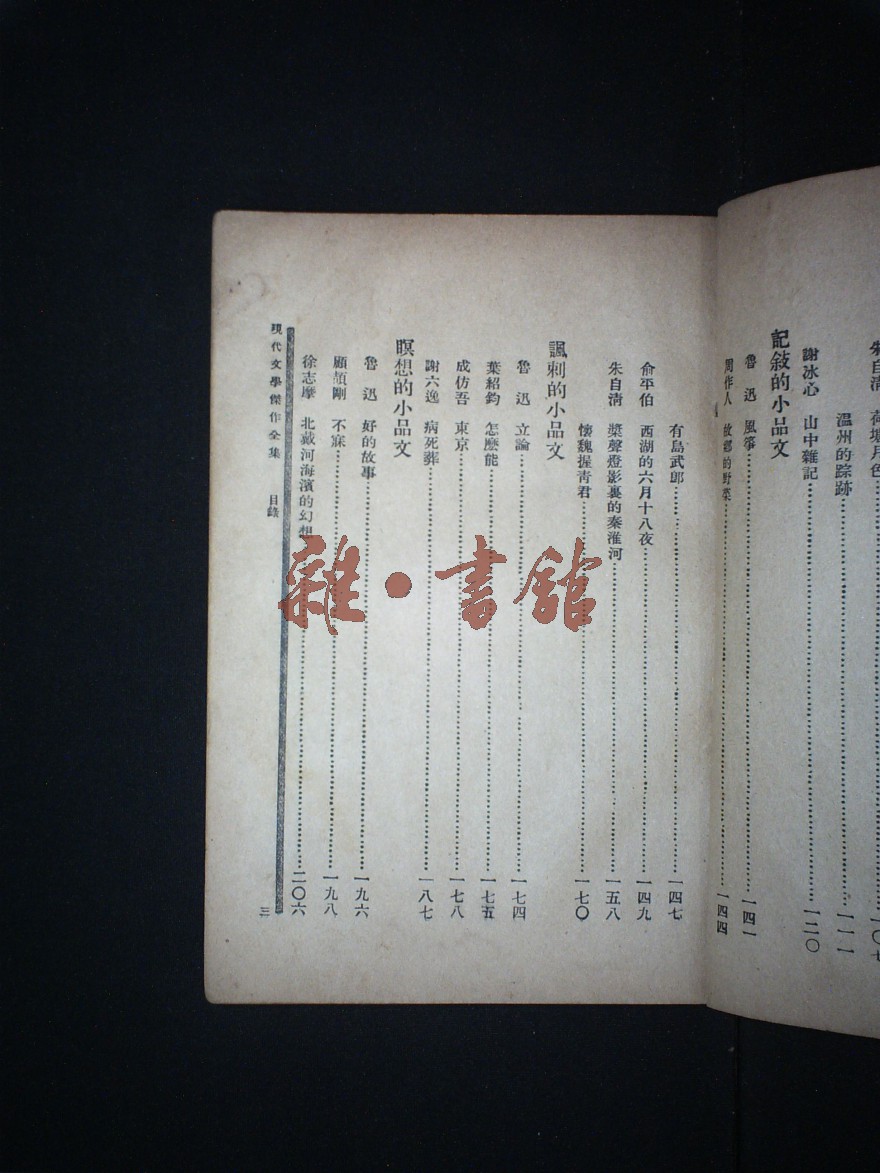 朱自清 荷塘月色……一〇七
温州的踪跡……一一一
謝冰心 山中雜記……一二〇
記敍的小品文
魯迅 風箏……一四一
周作人 故鄉的野菜……一四四
有島武郎……一四七
俞平伯 西湖的六月十八夜……一四九
朱自淸 槳聲燈影裏的秦淮河……一五八
懷魏握靑君……一七〇
諷刺的小品文
魯迅 立論……一七四
葉紹鈞 怎麼能……一七五
成仿吾 東京……一七八
謝六逸 病死葬……一八七
瞑想的小品文
魯迅 好的故事……一九六
顧頡剛 不寐……一九八
徐志摩 北戴河海濱的幻想……二〇六
現代文學傑作全集 目錄
三
雜·書館